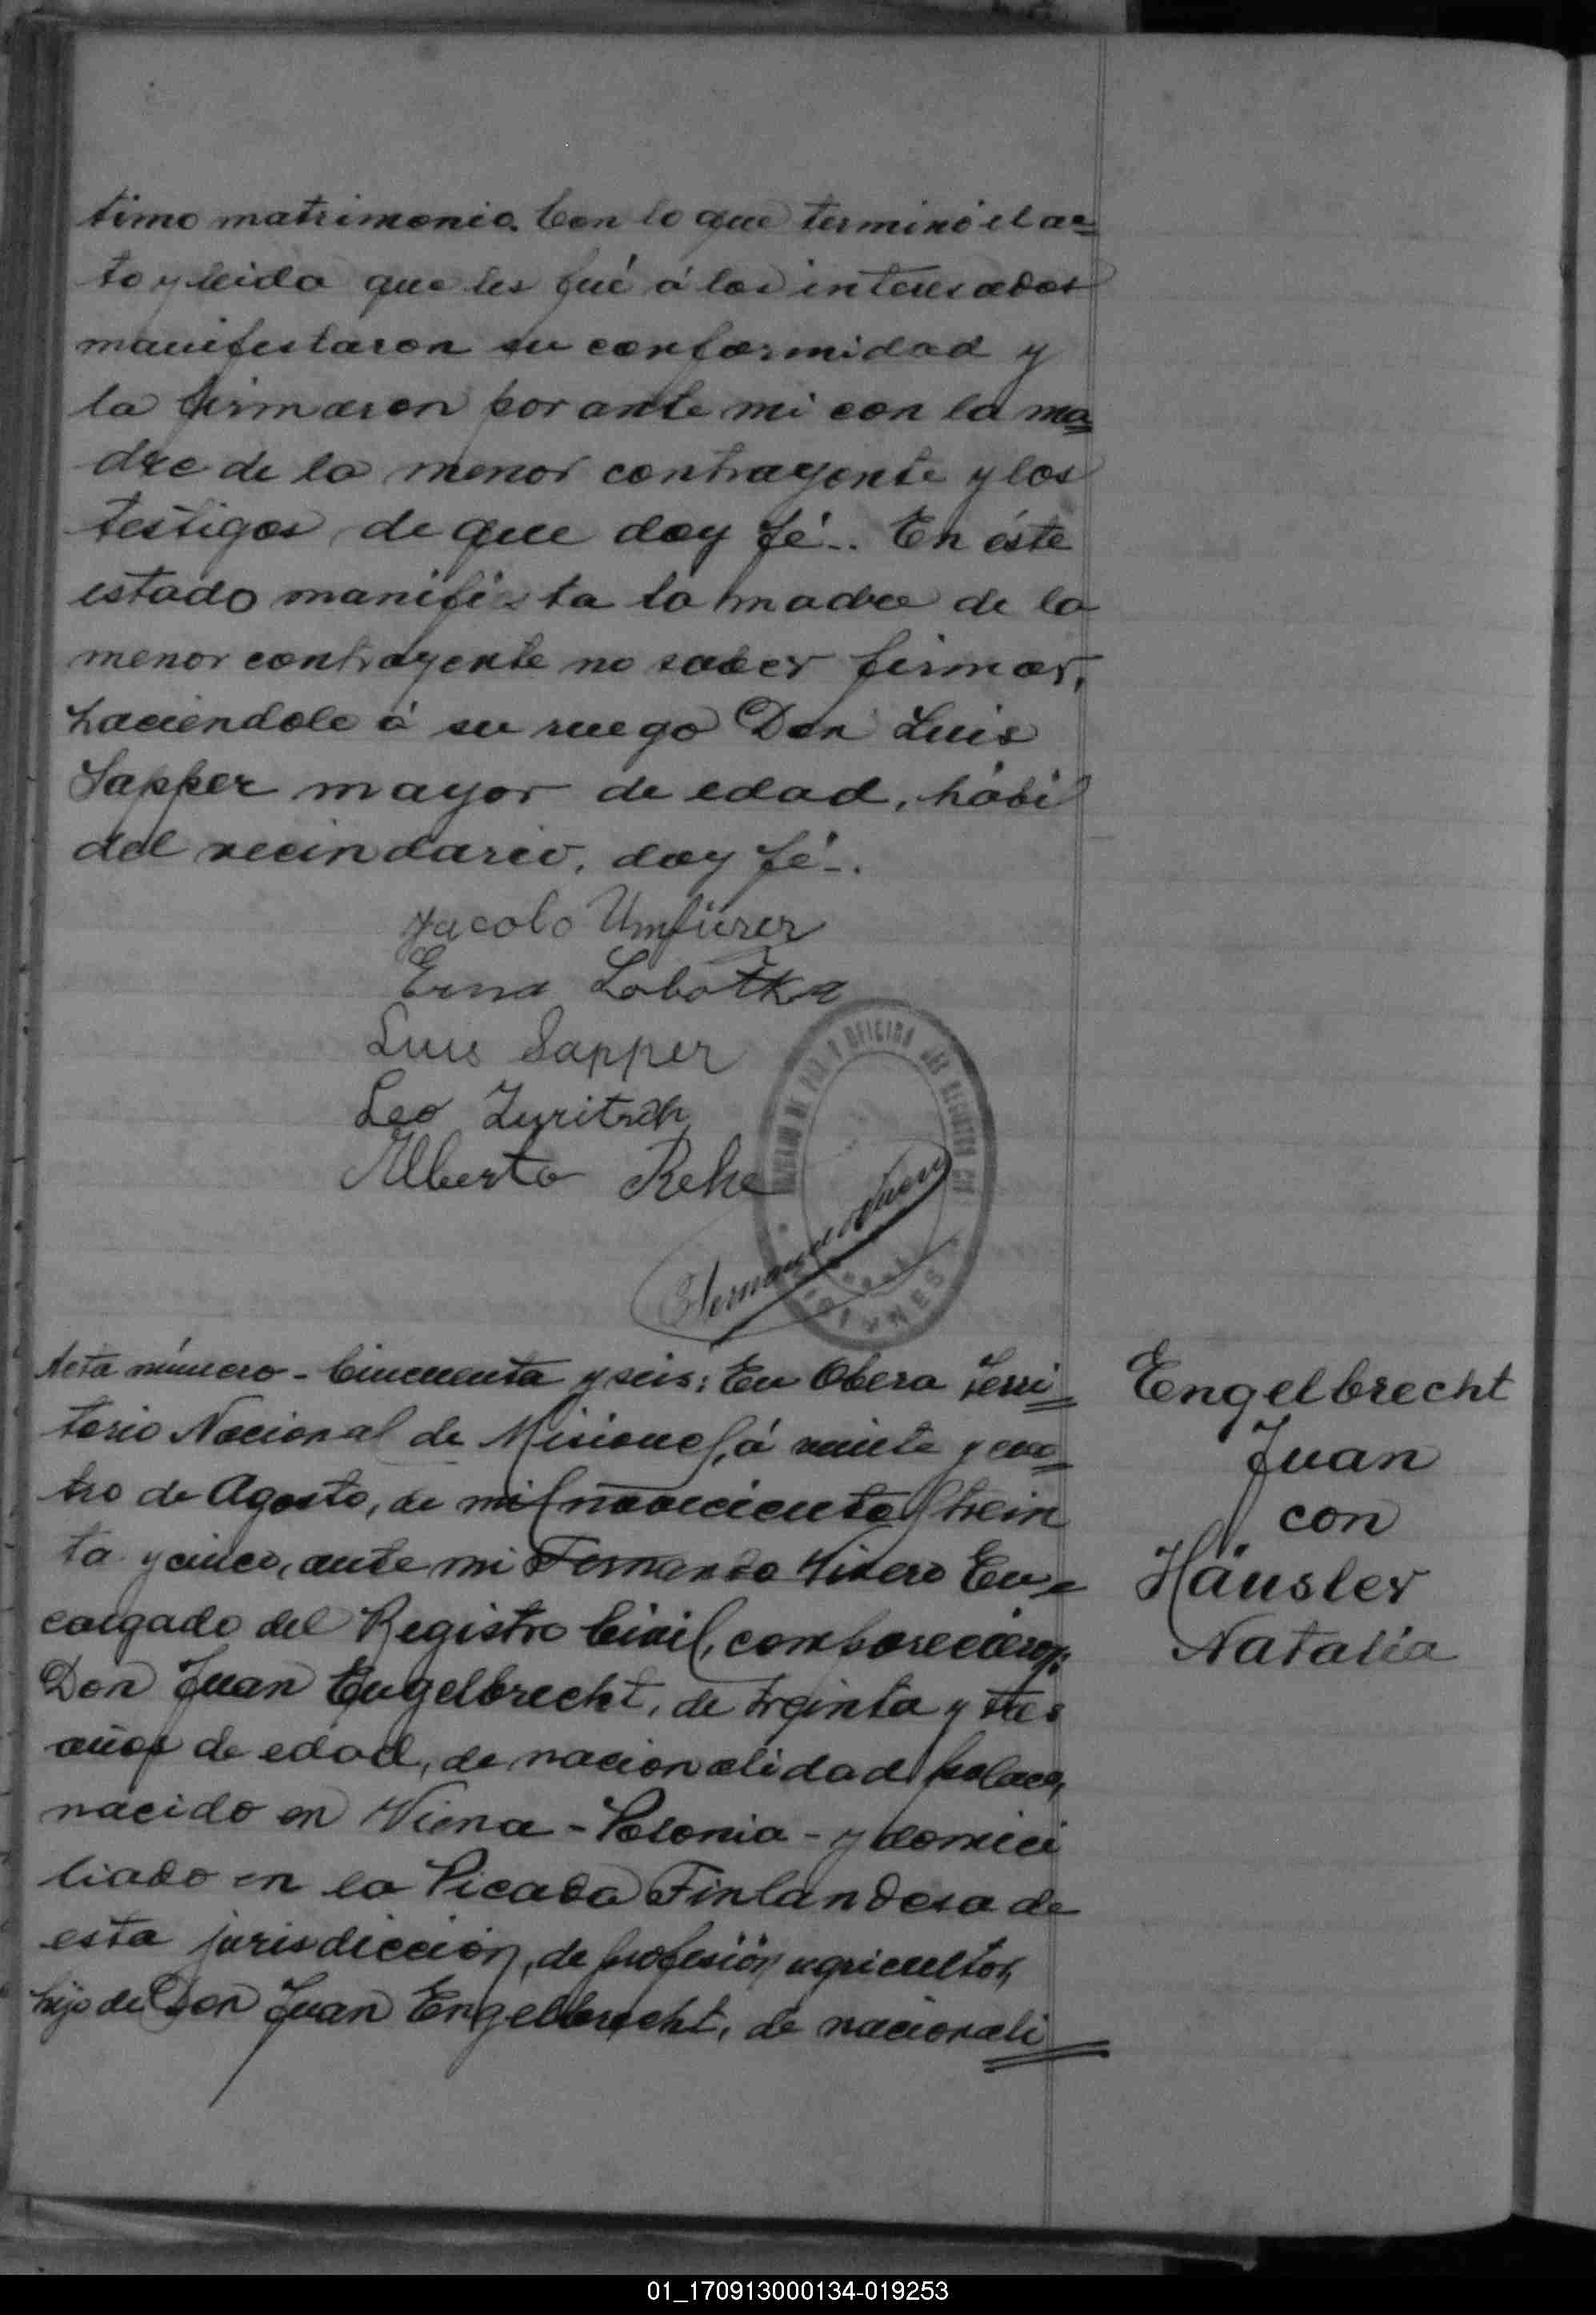 timo matrimonio. Con lo que terminó el ac=
to y leida que les fué á los interesados
manifestaron su conformidad y
la firmaron por ante mi con la ma=
dre de la menor contrayente y los
testigos de que doy fé-. En éste
estado manifiesta la madre de la
menor contrayente no saber firmar,
haciendole á su ruego Don Luis
Sapper mayor de edad, hábil
del vecindario, doy fé-.
Jacolo Umfürer
Erna Lobotka
Luis Sapper
Leo Zuritsch
Alberto Rehe
JUZGADO DE PAZ Y OFICINA DEL REGISTRO CIVIL
MISIONES
Acta número - Cincuenta y seis: En Obera Terri=
torio Nacional de Misiones, á veinte y cua=
tro de Agosto, de mil novecientos trein
ta y cinco, ante mi Fernando En=
cargado del Registro Civil, comparecieron:
Don Juan Engelbrecht, de treinta y tres
años de edad, de nacionalidad polaco,
nacido en Viena - Polonia - y domici
liado en la Picada Finlandesa de
esta jurisdicción, de profesión agricultor,
hijo de Don Juan Engelbrecht, de nacionali=
Engelbrecht
Juan
con
Häusler
Natalia
01_170913000134-019253